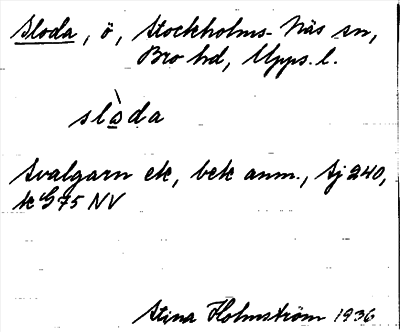 Sloda, ö, Stockholms-Näs sn,
Bro hd, Upps. l.
slò̲da
Svalgarn ek, bek anm., Sj 240,
k G 75 NV
Stina Holmström 1936